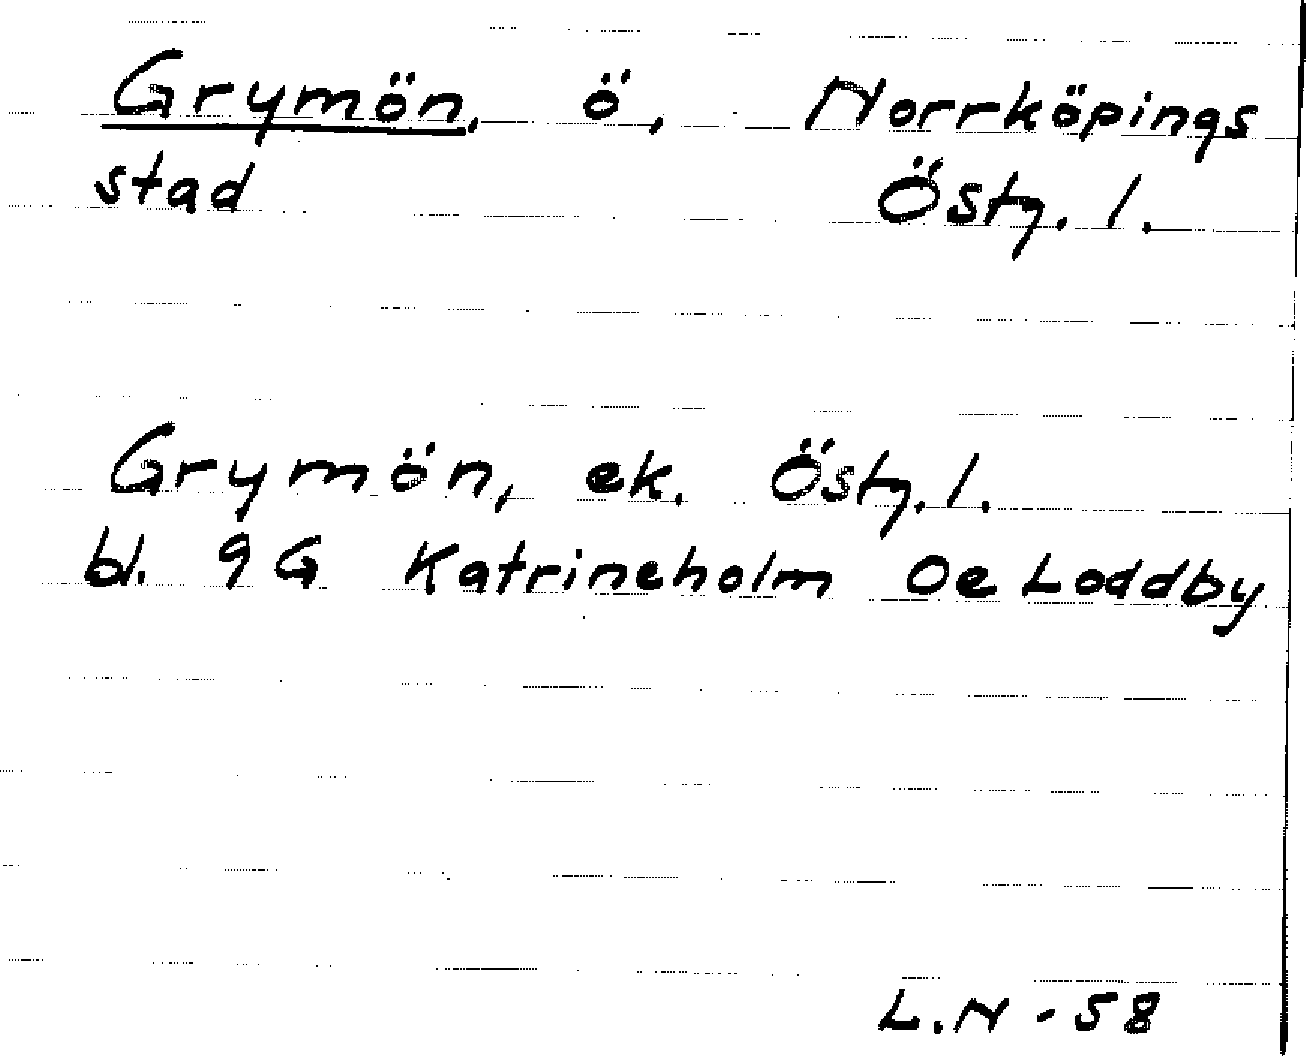 Grymön, ö, Norrköpings
stad Östg. l.
Grymön, ek. Östg. l.
bl. 9G Katrineholm Oe Loddby
L.N - 58